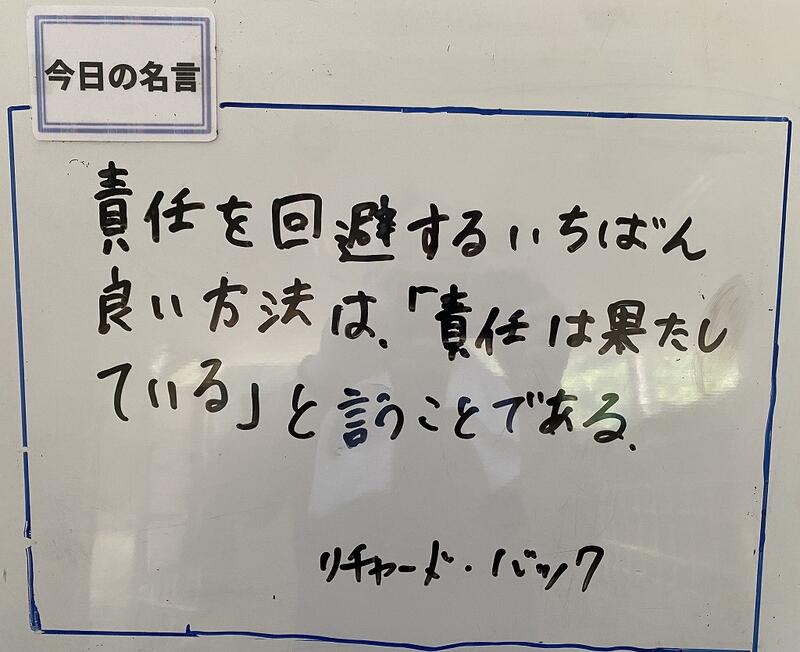 今日の名言
責任を回避するいちばん
良い方法は、「責任は果たし
ている」と言うことである。
リチャード・バック